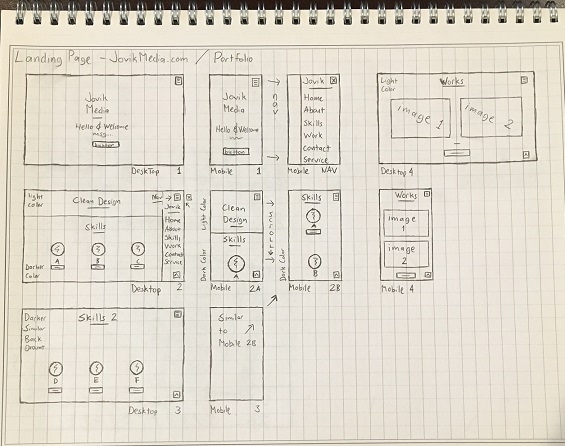 Landing Page - JovikMedia.com / Portfolio
Jovik
Media
Hello & Welcome
msg...
button
DeskTop 1
Jovik
Media
Hello & Welcome
button
Mobile 1
nav
Jovik
Home
About
Skills
Work
Contact
Service
Mobile NAV
Light
Color
Works
image 1
image 2
Desktop 4
Light
color
Clean Design
Nav
Skills
A
B
C
Darker
Color
Jovik
Home
About
Skills
Work
Contact
Service
Desktop 2
Light Color
Dark Color
Clean
Design
Skills
A
Mobile 2A
SCROLL
Dark Color
Skills
A
B
Mobile 2B
Works
image
1
image
2
Mobile 4
Darker
Similar
Back
Skills 2
D
E
F
Desktop 3
Similar
to
Mobile 2B
Mobile 3